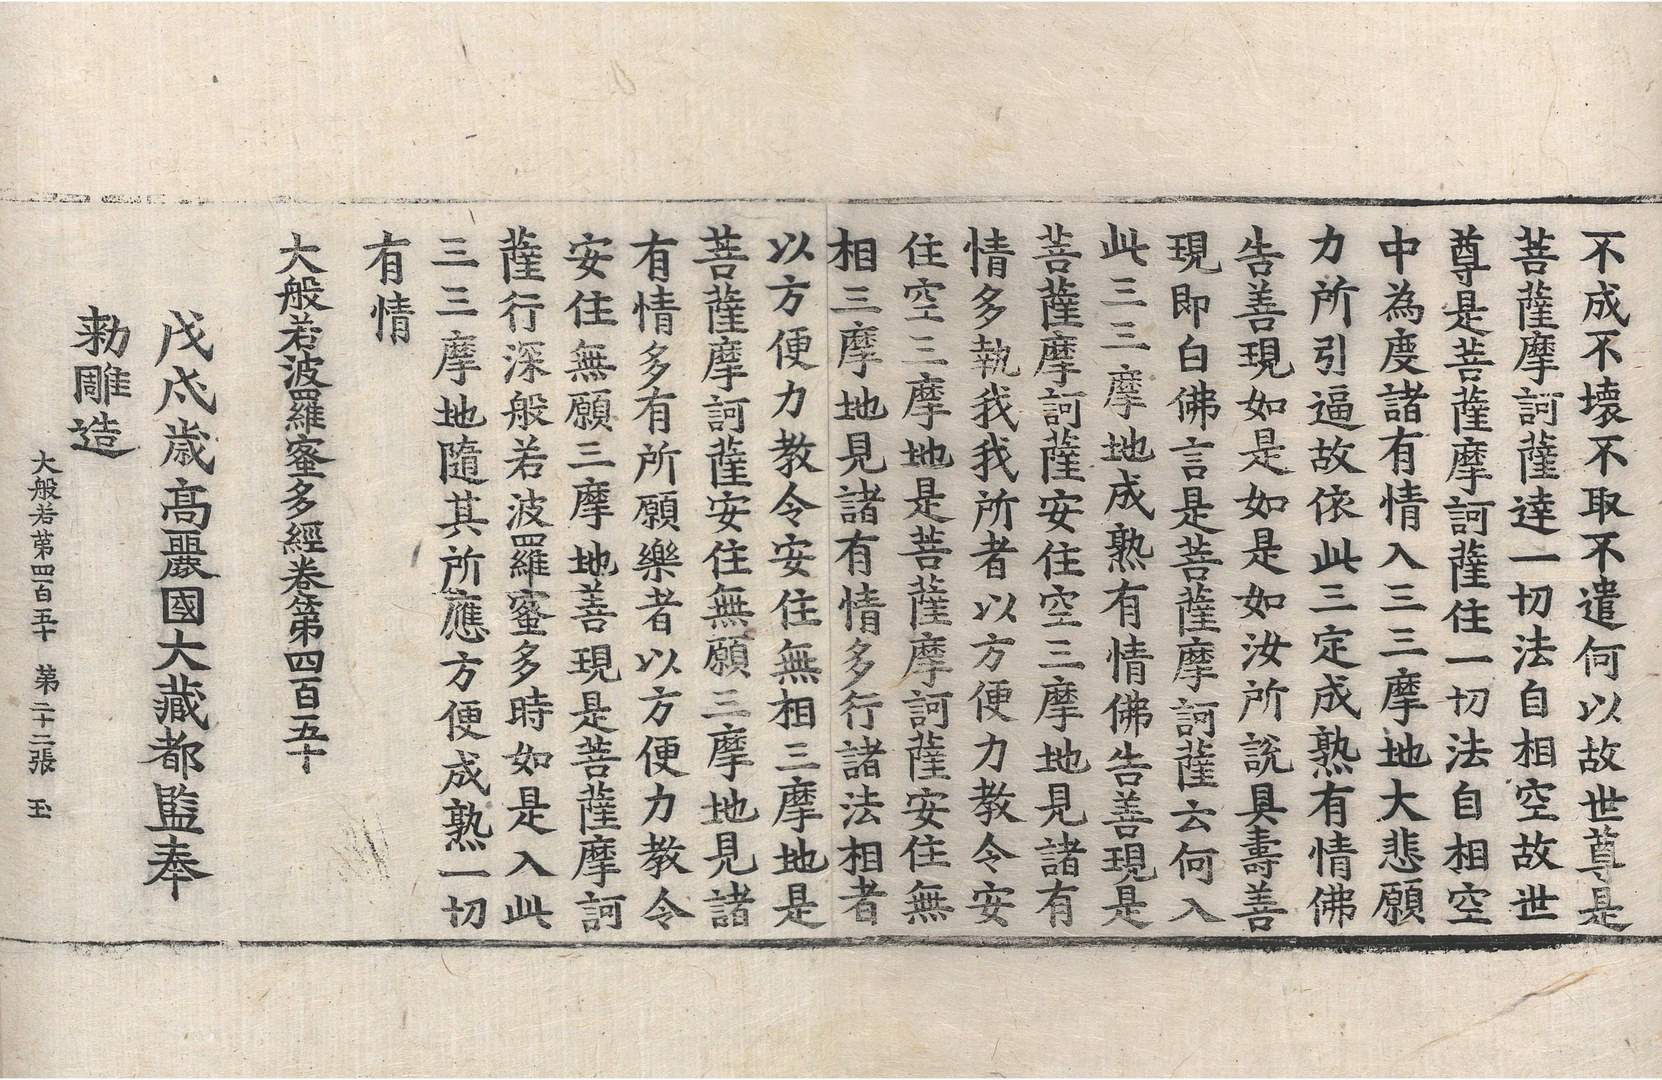 不成不壞不取不遣何以故世尊是
菩薩摩訶薩達一切法自相空故世
尊是菩薩摩訶薩住一切法自相空
中為度諸有情入三三摩地大悲願
力所引逼故依此三定成熟有情佛
告善現如是如是如汝所說具壽善
現即白佛言是菩薩摩訶薩云何入
此三三摩地成熟有情佛告善現是
菩薩摩訶薩安住空三摩地見諸有
情多執我我所者以方便力教令安
住空三摩地是菩薩摩訶薩安住無
相三摩地見諸有情多行諸法相者
以方便力教令安住無相三摩地是
菩薩摩訶薩安住無願三摩地見諸
有情多有所願樂者以方便力教令
安住無願三摩地善現是菩薩摩訶
薩行深般若波羅蜜多時如是入此
三三摩地隨其所應方便成熟一切
有情
大般若波羅蜜多經卷第四百五十
戊戌歲高麗國大藏都監奉
勅雕造
大般若第四百五十 第二十二張 玉